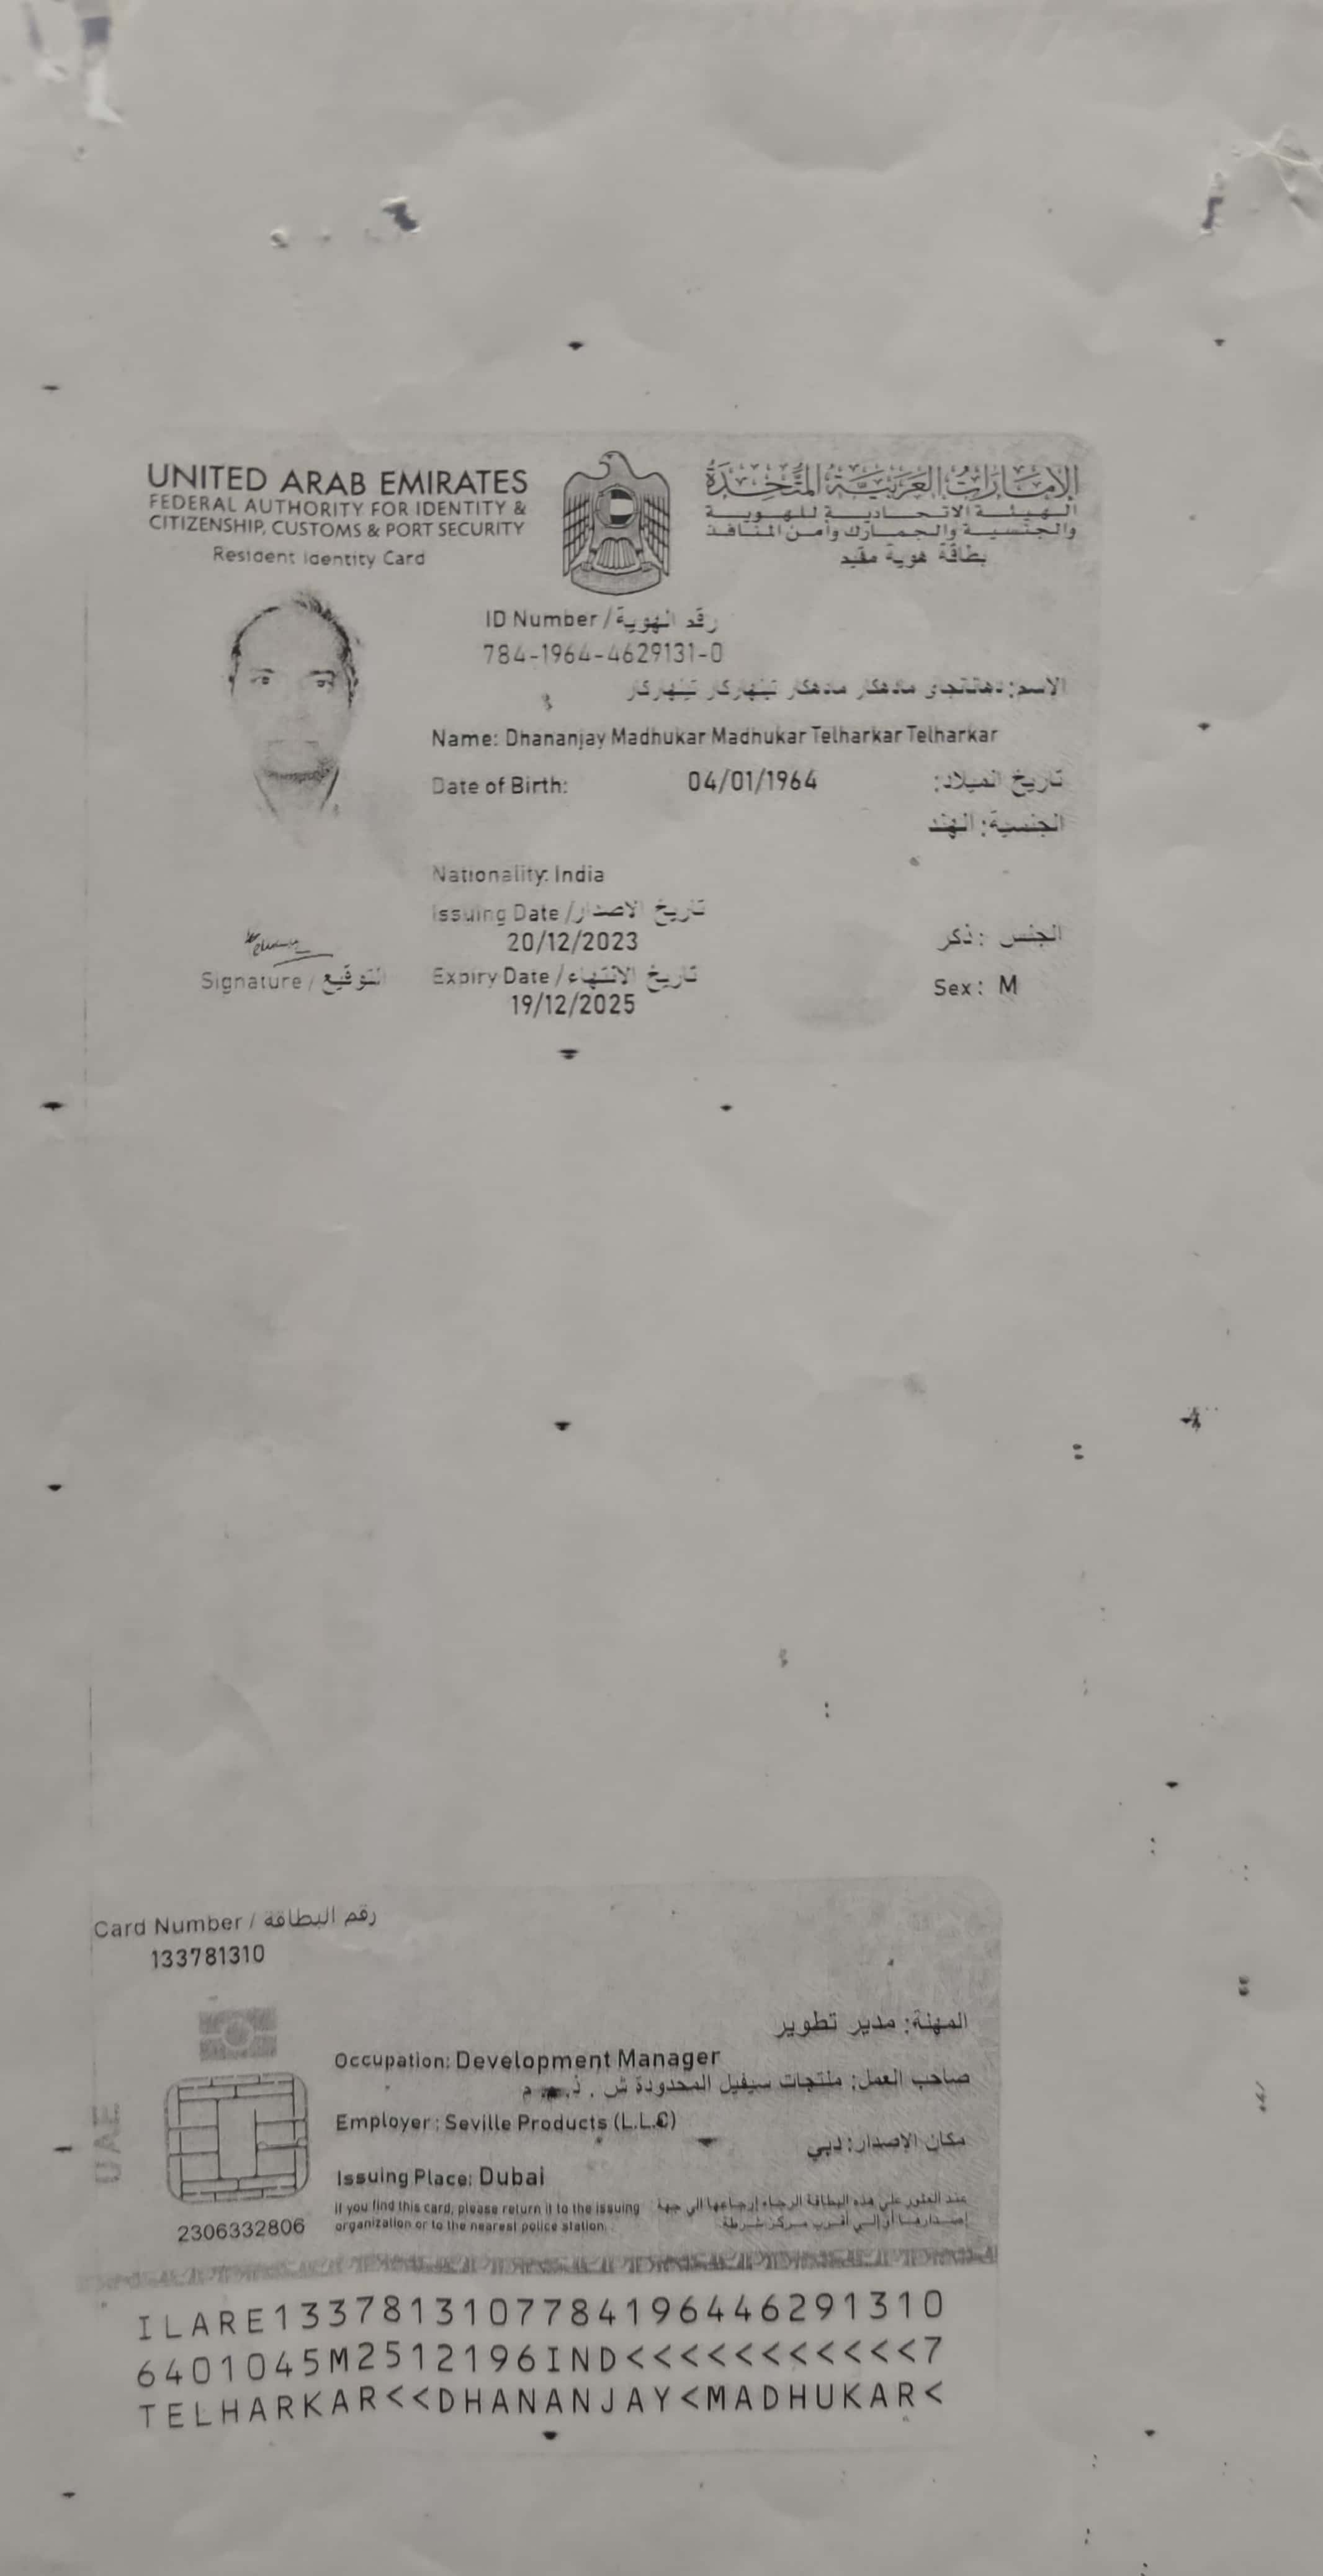 UNITED ARAB EMIRATES
FEDERAL AUTHORITY FOR IDENTITY &
CITIZENSHIP, CUSTOMS & PORT SECURITY
Resident Identity Card
الإمارات العربية المتحدة
الهيئة الاتحادية للهوية
والجنسية والجمارك وأمن المنافذ
بطاقة هوية مقيم
ID Number / رقم الهوية
784-1964-4629131-0
الاسم: دهاننجاى مادهكار مادهكار تيلهاركار تيلهاركار
Name: Dhananjay Madhukar Madhukar Telharkar Telharkar
Date of Birth: 04/01/1964 تاريخ الميلاد:
الجنسية: الهند
Nationality: India
Issuing Date / تاريخ الاصدار
20/12/2023
الجنس : ذكر
Signature / التوقيع
Expiry Date / تاريخ الانتهاء
19/12/2025
Sex: M
Card Number / رقم البطاقة
133781310
المهنة: مدير تطوير
Occupation: Development Manager
صاحب العمل: منتجات سيفيل المحدودة ش . ذ.م.م
Employer : Seville Products (L.L.C)
مكان الإصدار: دبي
Issuing Place: Dubai
UAE
If you find this card, please return it to the issuing
organization or to the nearest police station.
عند العثور على هذه البطاقة الرجاء إرجاعها الى جهة
إصدارها أو إلى أقرب مركز شرطة
2306332806
ILARE1337813107784196446291310
6401045M2512196IND<<<<<<<<<<<7
TELHARKAR<<DHANANJAY<MADHUKAR<